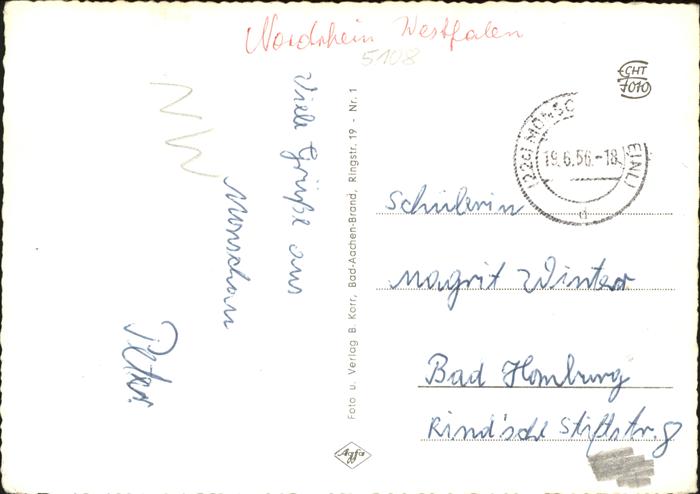 Nordrhein Westfalen
5108
Viele Grüße aus
Monschau
Peter.
Foto u. Verlag B. Korr, Bad-Aachen-Brand, Ringstr. 19 - Nr. 1
Agfa
ECHT
7010
(22c) MONSC EIFEL)
19.6.56.-18
d
Schülerin
Magrit Winter
Bad Homburg
Rind'sche Stiftstr. 8